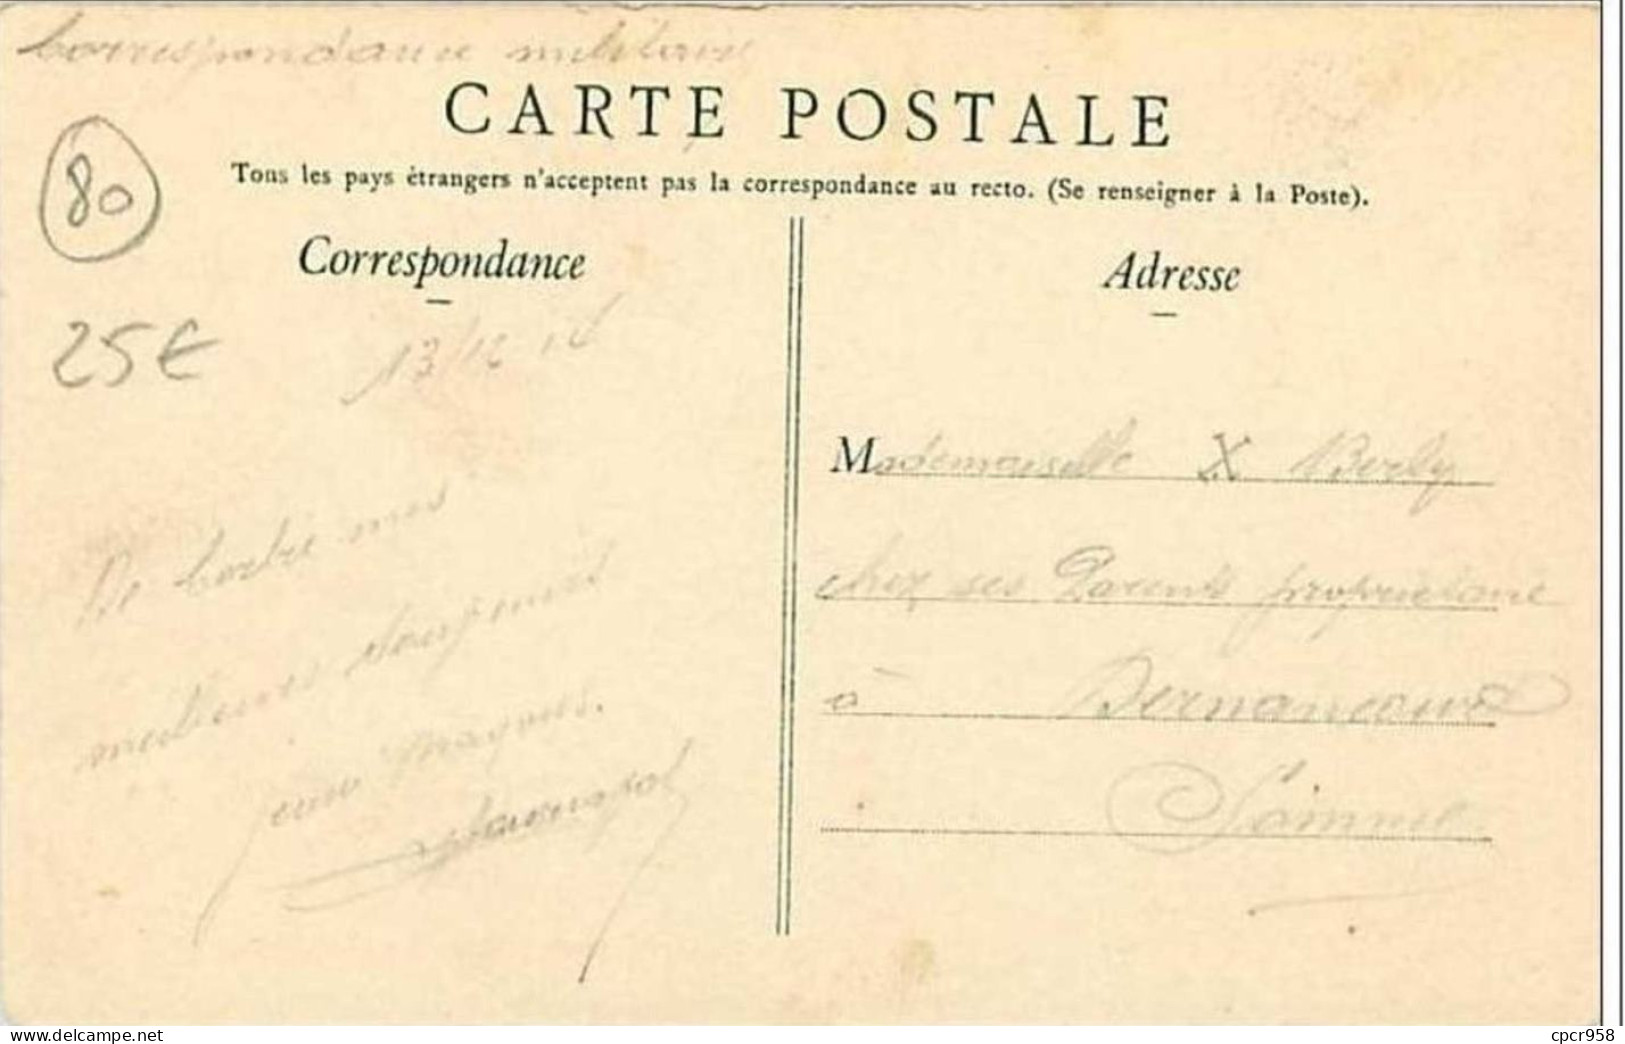 Correspondance militaire
CARTE POSTALE
Tous les pays étrangers n'acceptent pas la correspondance au recto. (Se renseigner à la Poste).
80
Correspondance
25€
13/12 14
De Corbie mes
meilleures
Adresse
Mademoiselle X Berly
chez ses Parents propriétaire
à Dernancourt
Somme
www.delcampe.net
cpcr958